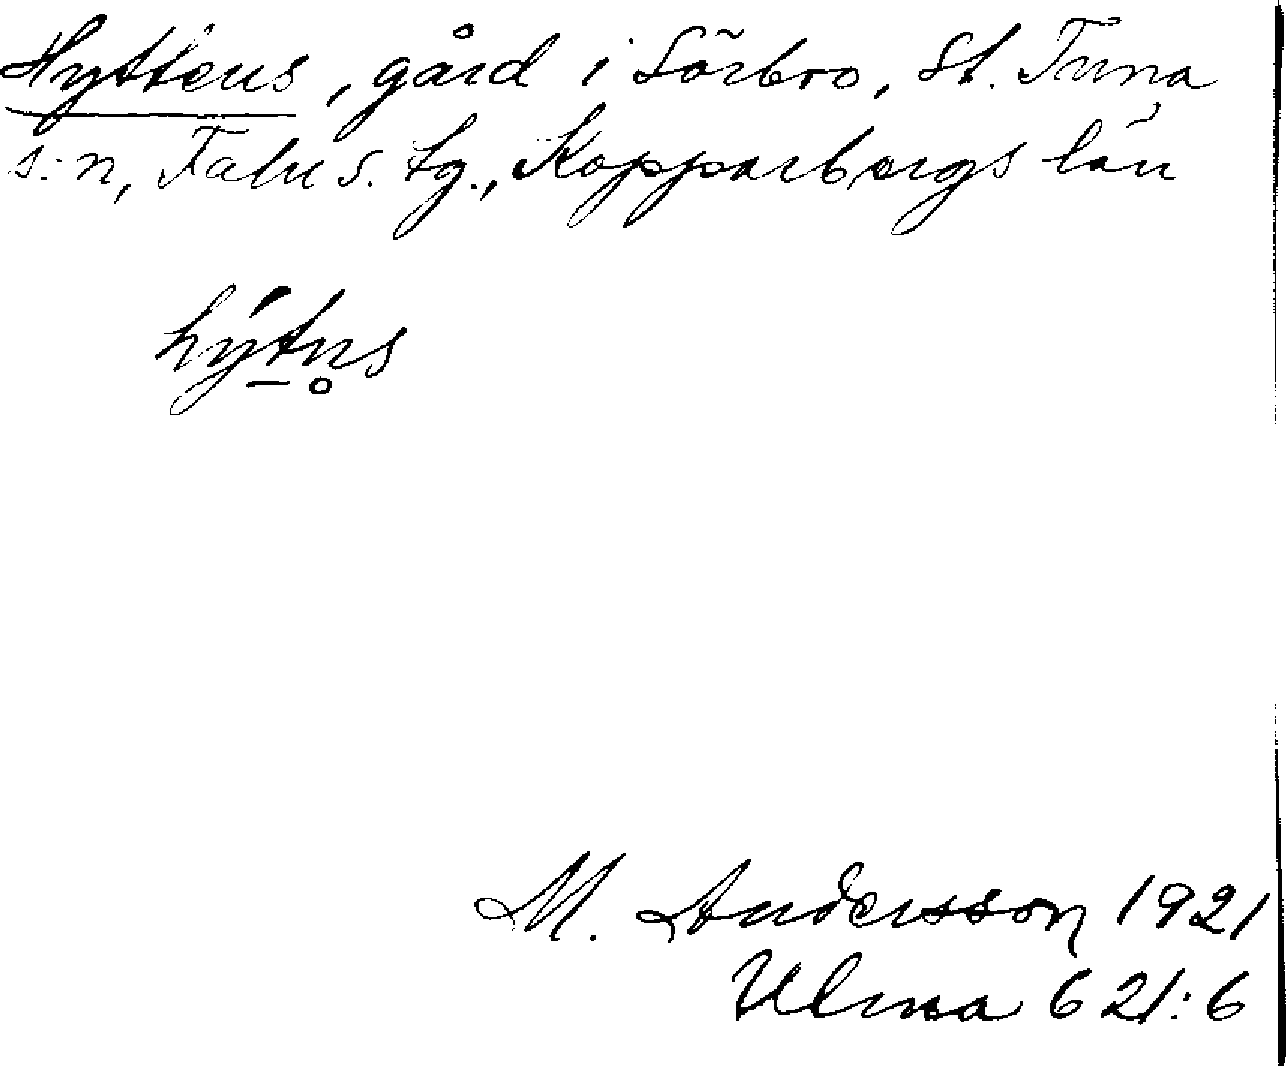 Hyttens, gård i Sörbro, St. Tuna
s:n, Falu s. tg., Kopparbergs län
hýt̲n̥s
M. Andersson 1921
Ulma 621:6